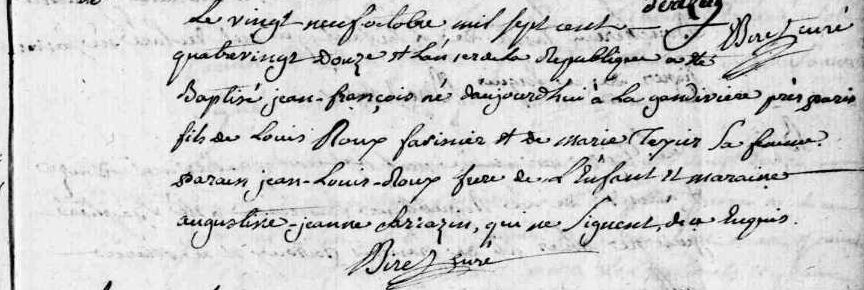 Biret curé
Le vingt neuf octobre mil sept cent
quatrevingt Douze et L'an 1er de la Republique a été
Baptisé jean-françois né d'aujourdhui à la gandiviere près paris
fils de Louis Roux farinier et de marie Texier sa femme.
parain jean-Louis-Roux frere de L'Enfant et maraine
augustine-jeanne Sarrazin, qui ne signent, de ce Enquis.
Biret curé